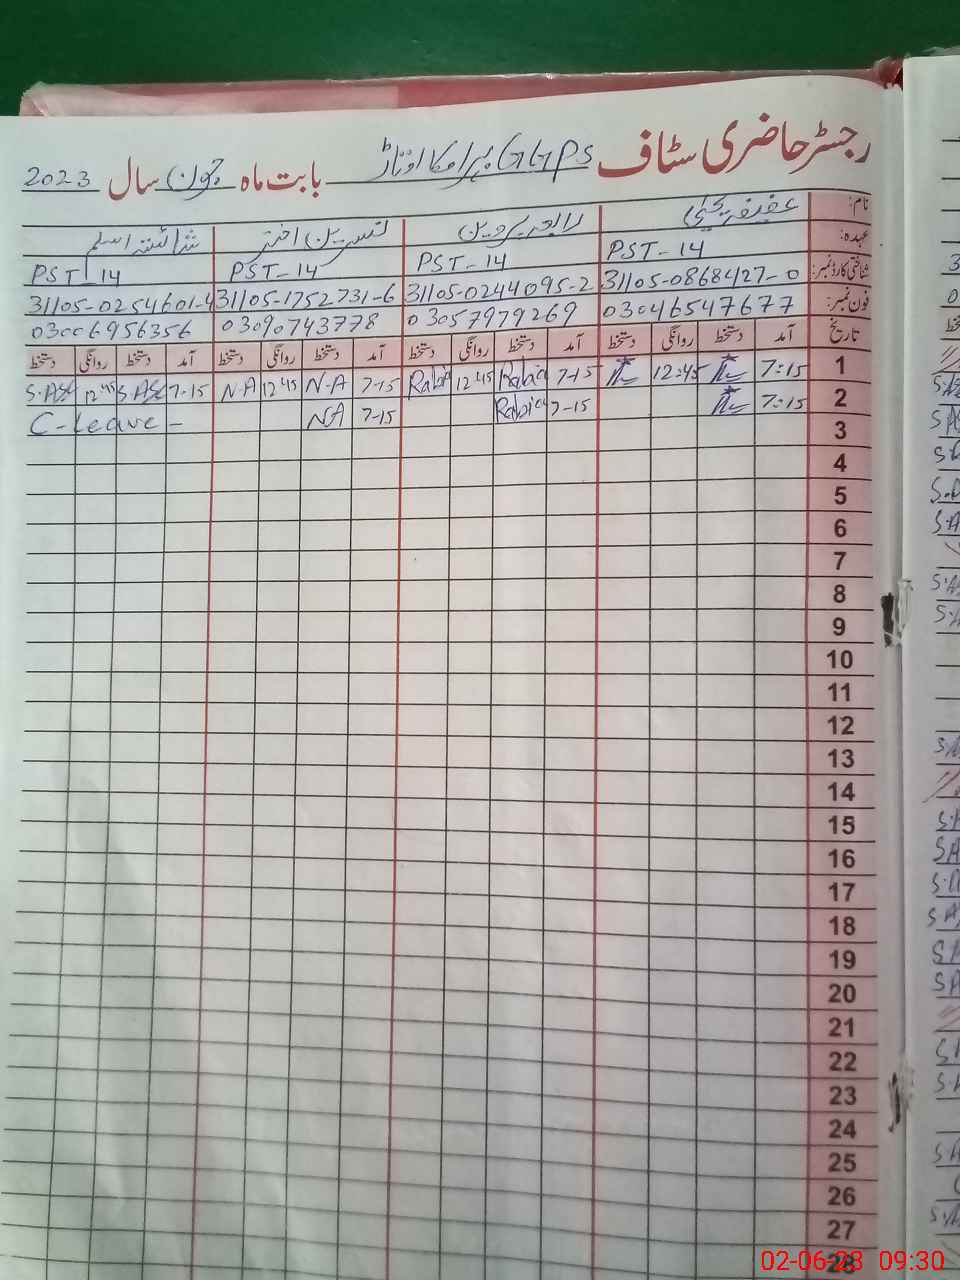 رجسٹر حاضری سٹاف GGPS بابت ماہ جون سال 2023
نام: عفیفہ یحییٰ رابعہ پروین نسرین اختر شائستہ اسلم
عہدہ: PST-14 PST-14 PST-14 PST-14
شناختی کارڈ نمبر: 31105-0868427-0 31105-0244095-2 31105-1752731-6 31105-0254601-4
فون نمبر: 03046547677 03057979269 03090743778 03006956356
تاریخ آمد دستخط روانگی دستخط آمد دستخط روانگی دستخط آمد دستخط روانگی دستخط آمد دستخط روانگی دستخط
1 7:15 12:45 7-15 Rabia 12:45 Rabia 7-15 N-A 12:45 N A 7-15 S.As 12:45 S.As
2 7:15 7-15 Rabia 7-15 NA C-Leave-
3
4
5
6
7
8
9
10
11
12
13
14
15
16
17
18
19
20
21
22
23
24
25
26
27
28
02-06-23 09:30